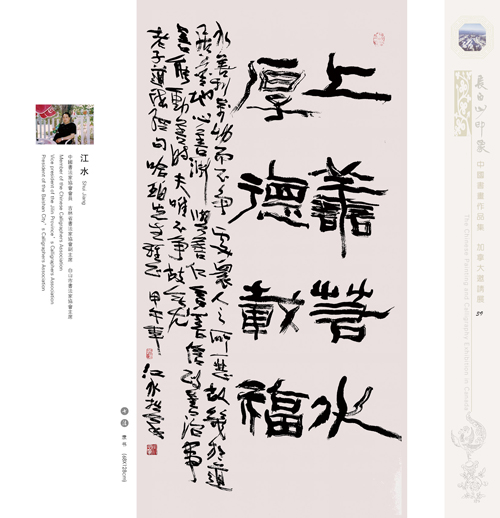 長白山印象 中國書畫作品集 加拿大邀請展 59
The Chinese Painting and Calligraphy Exhibition in Canada
上善若水
厚德載福
水善利萬物而不爭處眾人之所惡故幾於道
居善地心善淵與善仁言善信政善治事
善能動善時夫唯不爭故無尤
老子道德經句 先生雅正 甲午年
江水
江水 Shui Jiang
中國書法家協會會員 吉林省書法家協會副主席 白山市書法家協會主席
Member of the Chinese Calligraphers Association
Vice president of the Jilin Province's Calligraphers Association
President of the Baishan City's Calligraphers Association